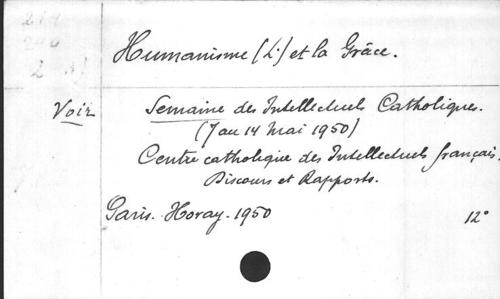 Humanisme (L') et la Grâce.
Voir Semaine des Intellectuels Catholiques.
(7 au 14 Mai 1950)
Centre catholique des Intellectuels français.
Discours et Rapports.
Paris. Horay. 1950 12°